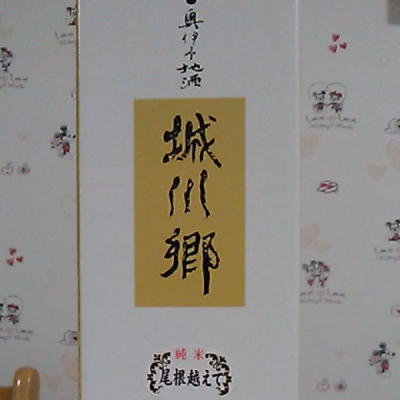 奥伊予地酒
城川郷
純米
尾根越えて